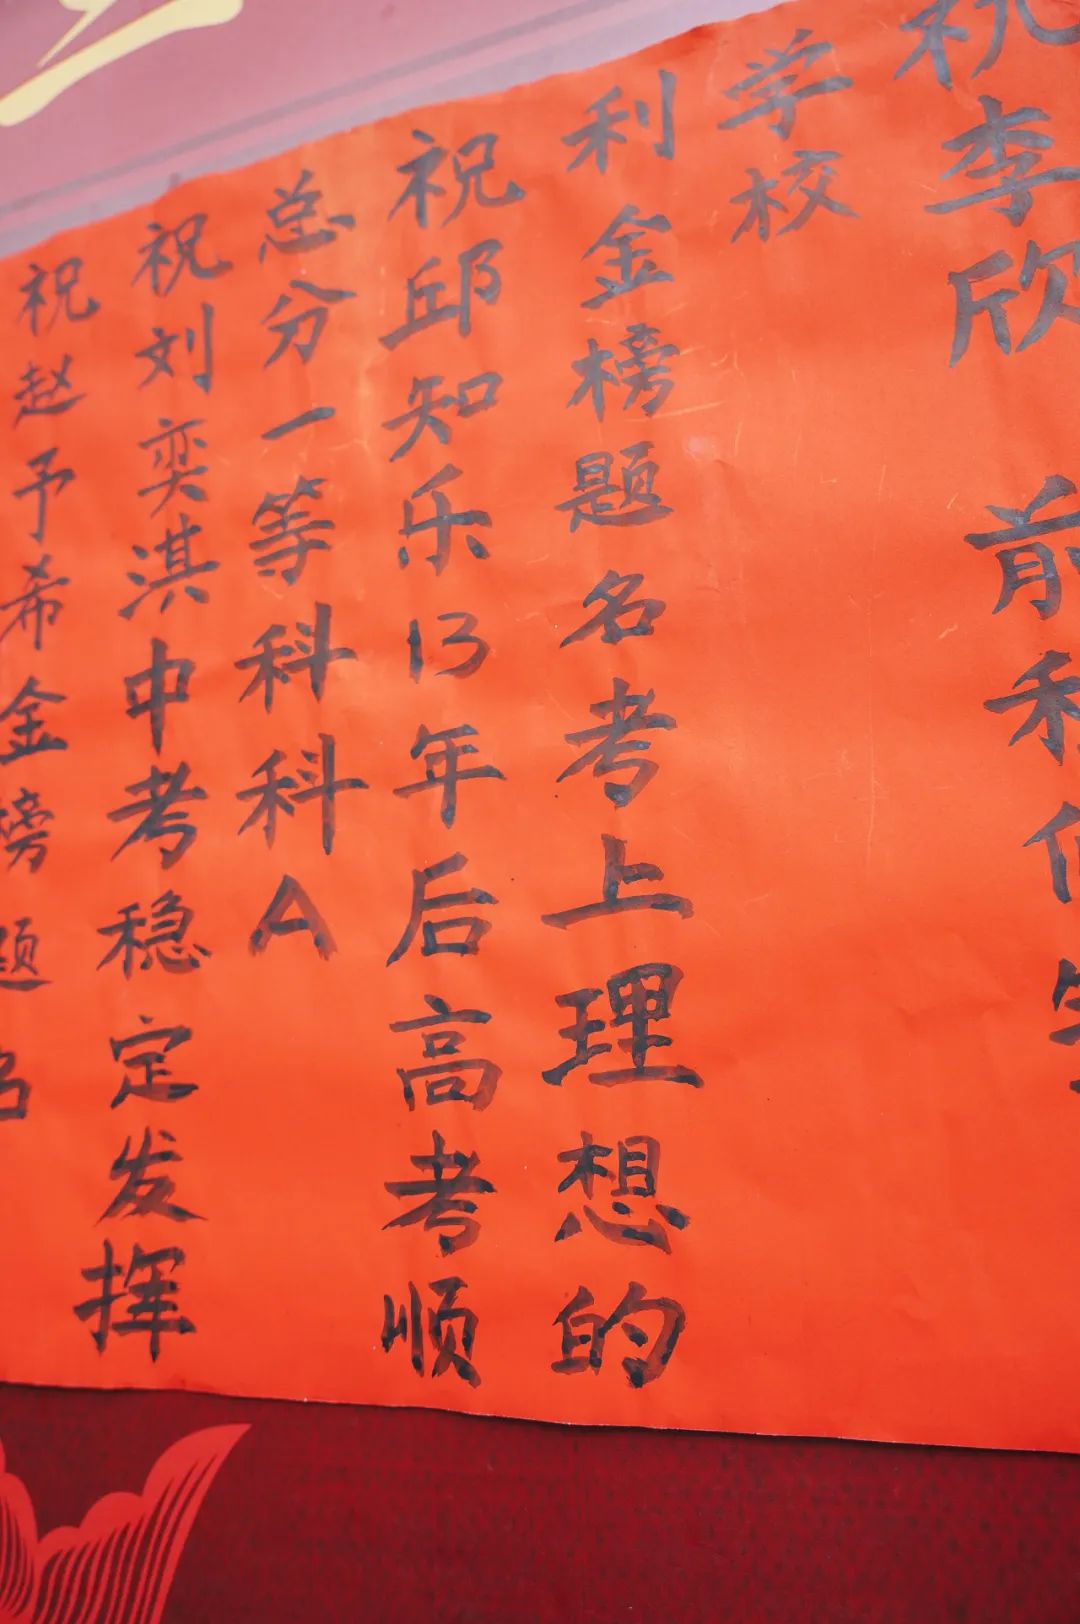 祝赵予希金榜题名
祝刘奕淇中考稳定发挥
总分一等科科A
祝邱知乐13年后高考顺
利金榜题名考上理想的
学校
祝李欣 前